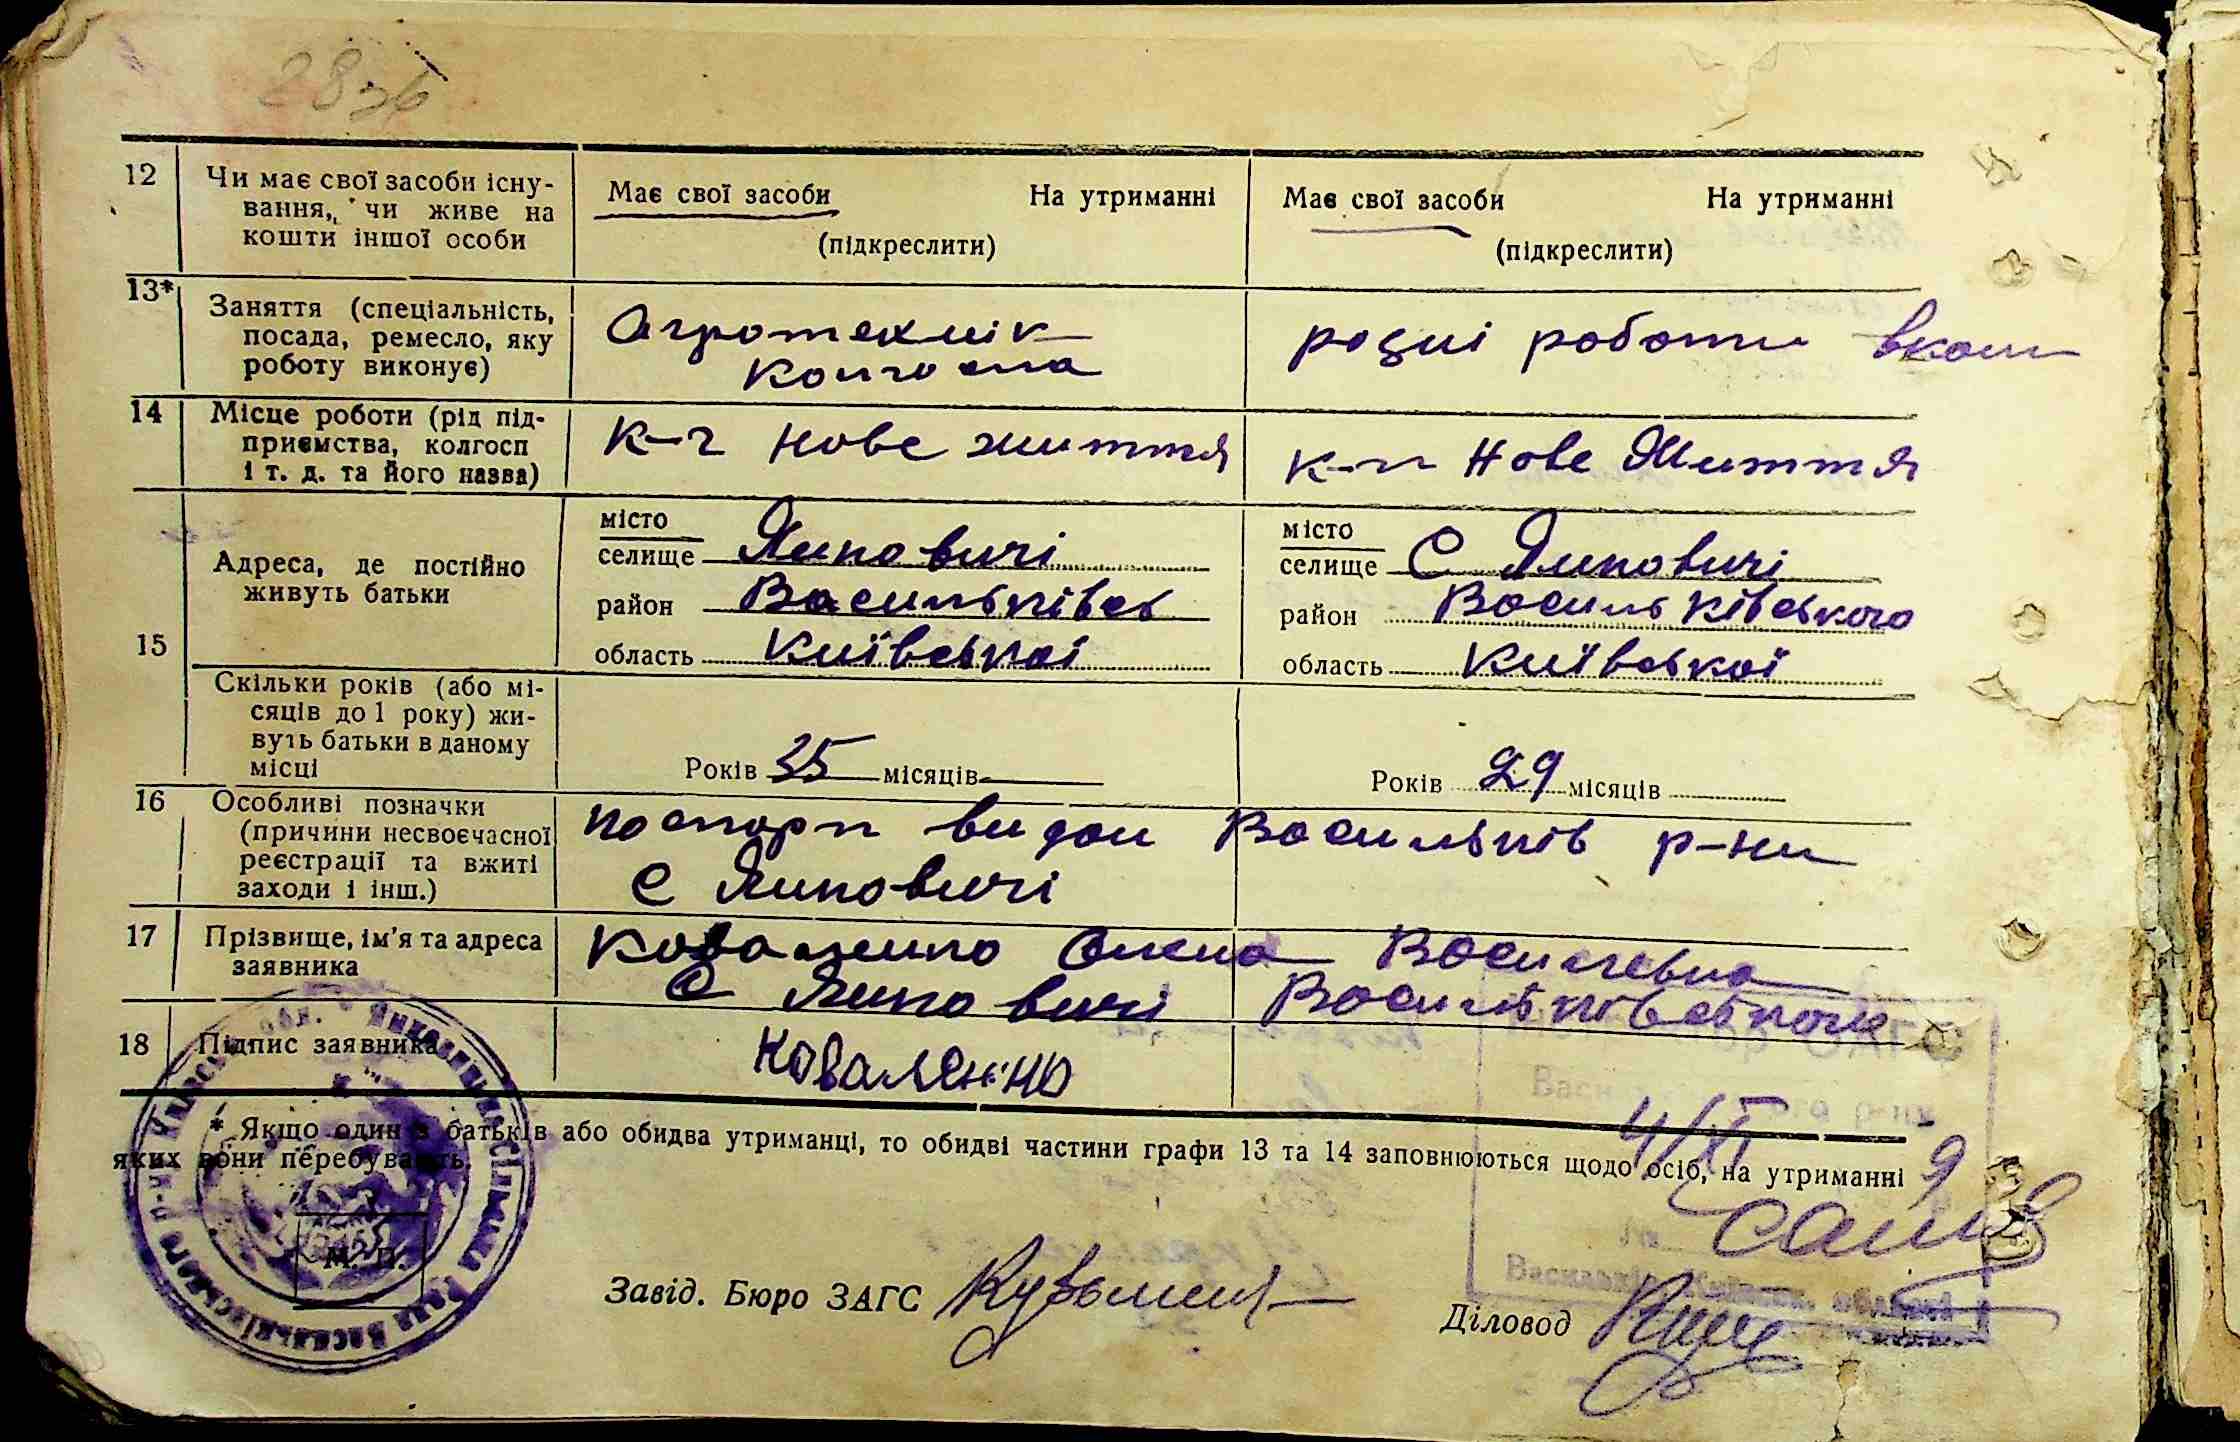 28 зв
12 Чи має свої засоби існу-
вання, чи живе на
кошти іншої особи
Має свої засоби На утриманні
(підкреслити)
Має свої засоби На утриманні
(підкреслити)
13* Заняття (спеціальність,
посада, ремесло, яку
роботу виконує)
Агротехнік
колгоспа
різні роботи в колг
14 Місце роботи (рід під-
приємства, колгосп
і т. д. та його назва)
к-г нове життя
к-п Нове Життя
15 Адреса, де постійно
живуть батьки
місто
селище Яцковичі
район Васильківсь
область Київської
місто
селище С Яцковичі
район Васильківського
область Київської
Скільки років (або мі-
сяців до 1 року) жи-
вуть батьки в даному
місці
Років 35 місяців
Років 29 місяців
16 Особливі позначки
(причини несвоєчасної
реєстрації та вжиті
заходи і інш.)
паспорт видан Васильків р-ну
С
17 Прізвище, ім'я та адреса
заявника
Коваленко Олена Василевна
С
18 Підпис заявника
Коваленко
* Якщо один з батьків або обидва утриманці, то обидві частини графи 13 та 14 заповнюються щодо осіб, на утриманні
яких вони перебувають.
М. П.
4/XI 9
Завід. Бюро ЗАГС
Діловод